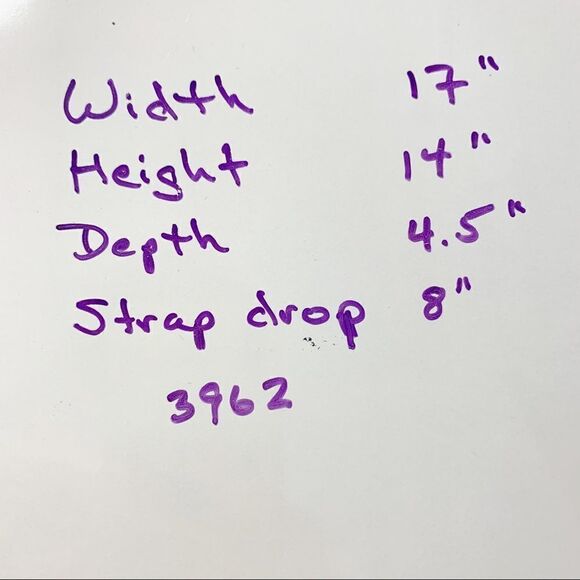 Width 17"
Height 14"
Depth 4.5"
Strap drop 8"
3962